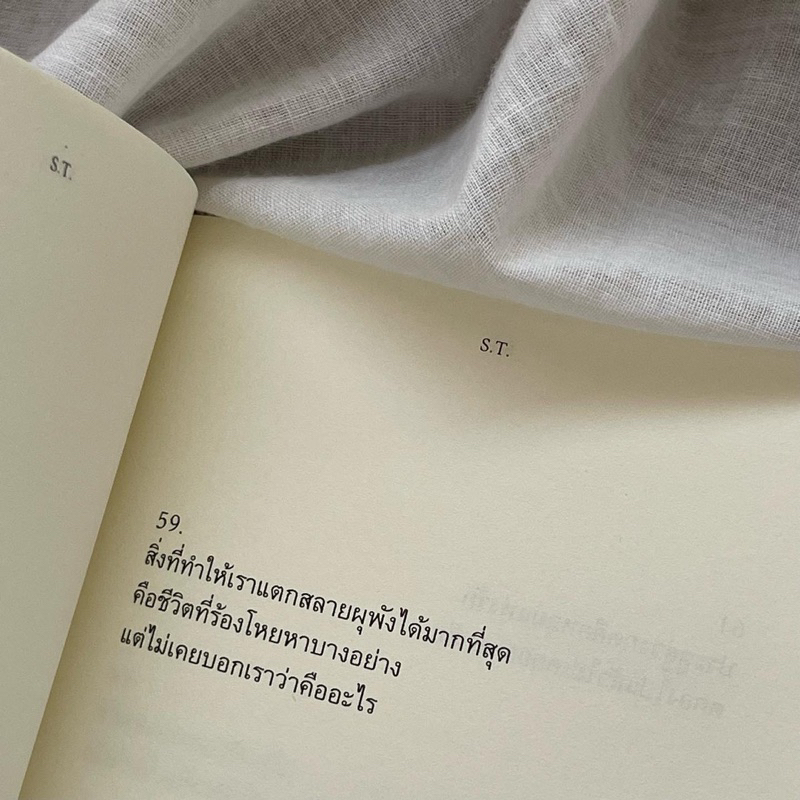 S.T.
S.T.
59.
สิ่งที่ทำให้เราแตกสลายผุพังได้มากที่สุด
คือชีวิตที่ร้องโหยหาบางอย่าง
แต่ไม่เคยบอกเราว่าคืออะไร